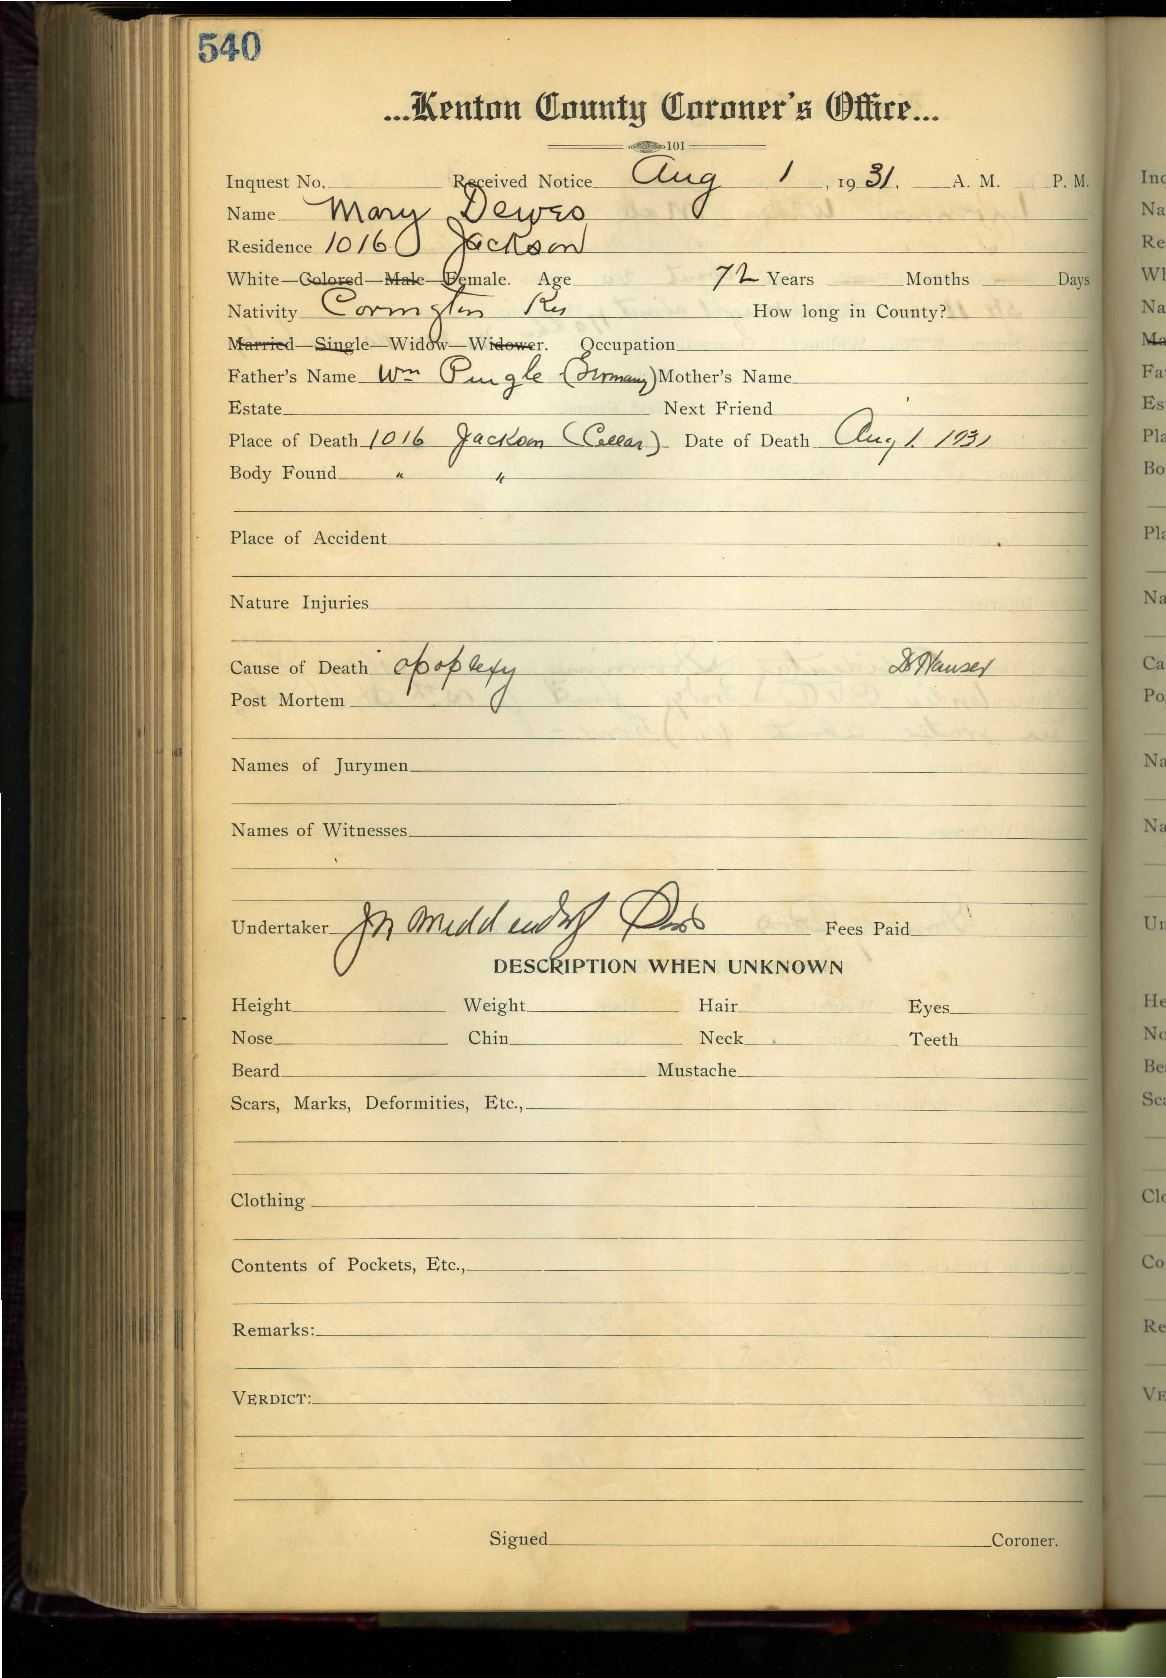 540
...Kenton County Coroner's Office...
101
Inquest No. Received Notice Aug 1, 1931. A. M. P. M.
Name Mary Dewes
Residence 1016 Jackson
White—Colored—Male—Female. Age 72 Years Months Days
Nativity Covington Ky How long in County?
Married—Single—Widow—Widower. Occupation
Father's Name Wm Pungle (Germany) Mother's Name
Estate Next Friend
Place of Death 1016 Jackson (Cellar) Date of Death Aug 1. 1931
Body Found " "
Place of Accident
Nature Injuries
Cause of Death apoplexy Dr Hauser
Post Mortem
Names of Jurymen
Names of Witnesses
Undertaker Jn Middendorf Fees Paid
DESCRIPTION WHEN UNKNOWN
Height Weight Hair Eyes
Nose Chin Neck Teeth
Beard Mustache
Scars, Marks, Deformities, Etc.,
Clothing
Contents of Pockets, Etc.,
Remarks:
VERDICT:
Signed Coroner.